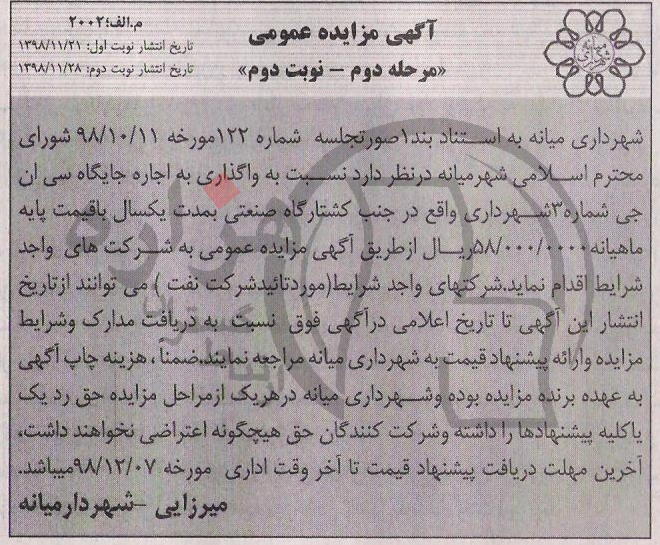 آگهی مزایده عمومی
«مرحله دوم – نوبت دوم»
م.الف؛۲۰۰۲
تاریخ انتشار نوبت اول: ۱۳۹۸/۱۱/۲۱
تاریخ انتشار نوبت دوم: ۱۳۹۸/۱۱/۲۸
شهرداری میانه به استناد بند۱صورتجلسه شماره ۱۲۲مورخه ۹۸/۱۰/۱۱ شورای
محترم اسلامی شهرمیانه درنظر دارد نسبت به واگذاری به اجاره جایگاه سی ان
جی شماره۳شهرداری واقع در جنب کشتارگاه صنعتی بمدت یکسال باقیمت پایه
ماهیانه۵۸/۰۰۰/۰۰۰۰ریال ازطریق آگهی مزایده عمومی به شرکت های واجد
شرایط اقدام نماید.شرکتهای واجد شرایط(موردتائیدشرکت نفت ) می توانند ازتاریخ
انتشار این آگهی تا تاریخ اعلامی درآگهی فوق نسبت به دریافت مدارک وشرایط
مزایده وارائه پیشنهاد قیمت به شهرداری میانه مراجعه نمایند.ضمنا ، هزینه چاپ آگهی
به عهده برنده مزایده بوده وشهرداری میانه درهریک ازمراحل مزایده حق رد یک
یاکلیه پیشنهادها را داشته وشرکت کنندگان حق هیچگونه اعتراضی نخواهند داشت،
آخرین مهلت دریافت پیشنهاد قیمت تا آخر وقت اداری مورخه ۹۸/۱۲/۰۷میباشد.
میرزایی –شهردارمیانه
هزاره